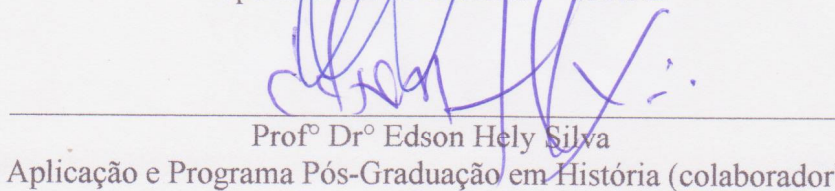 Profº Drº Edson Hely Silva
Aplicação e Programa Pós-Graduação em História (colaborador